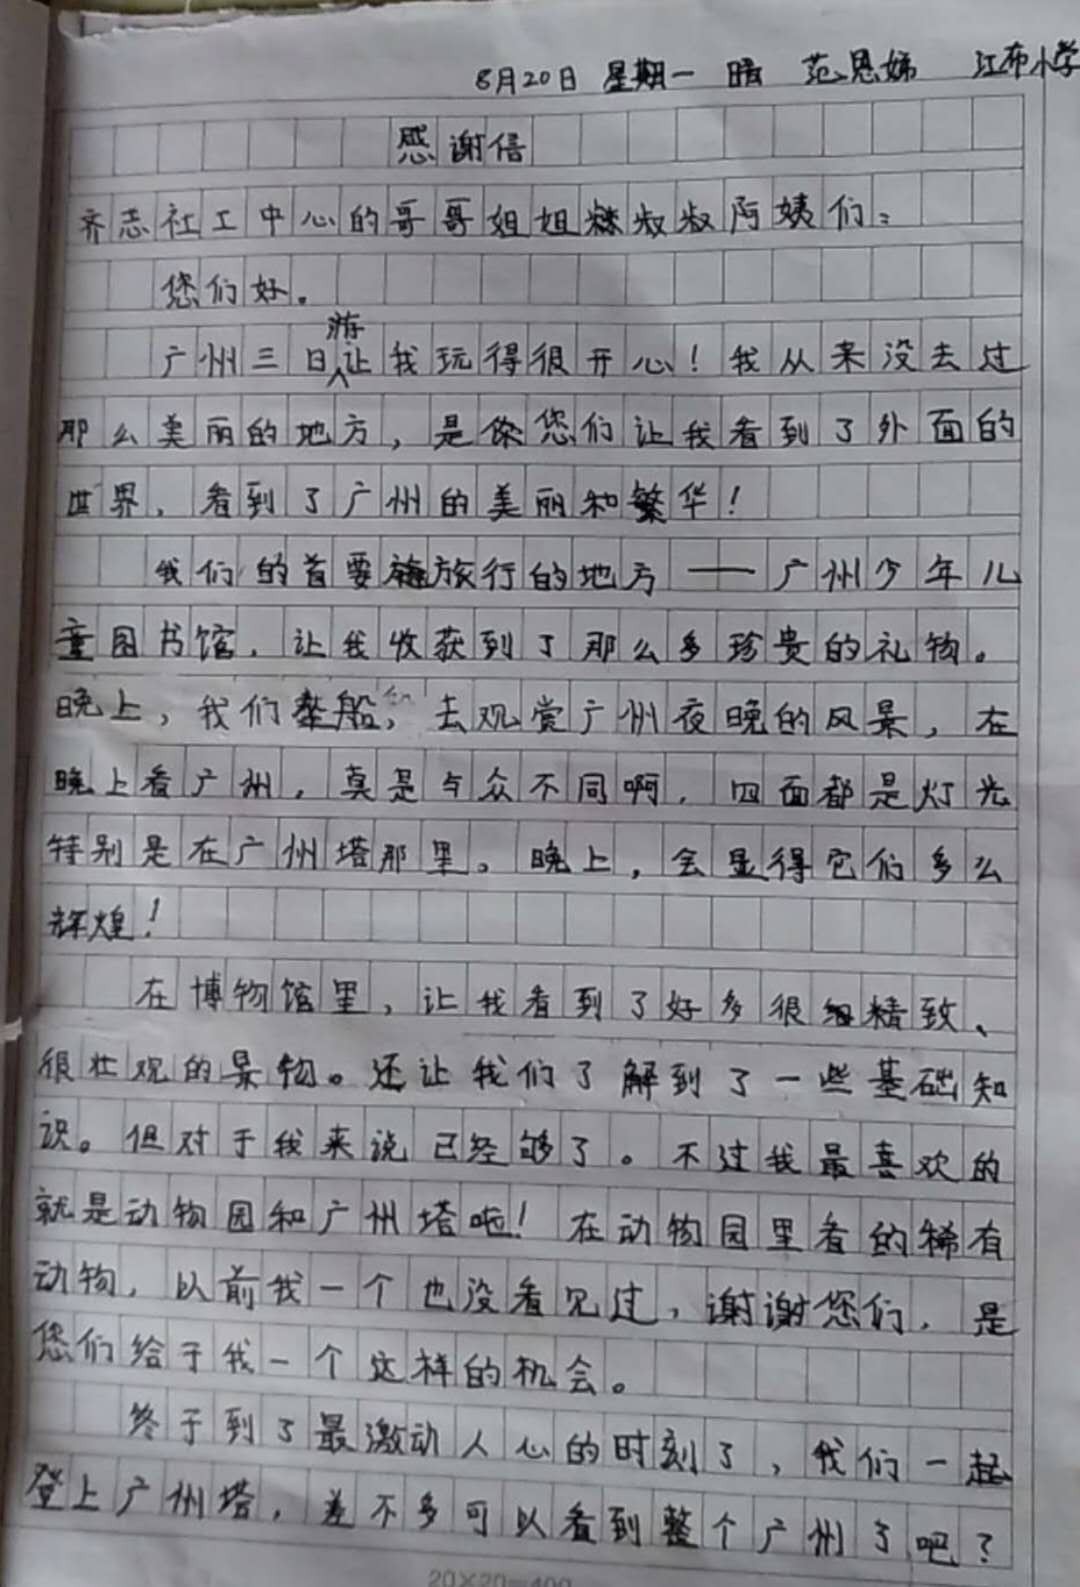 8月20日 星期一 晴 范恩娣 江布小学
感谢信
齐志社工中心的哥哥姐姐叔叔阿姨们：
您们好。
广州三日游让我玩得很开心！我从来没去过
那么美丽的地方，是您们让我看到了外面的
世界，看到了广州的美丽和繁华！
我们的首要旅行的地方——广州少年儿
童图书馆，让我收获到了那么多珍贵的礼物。
晚上，我们坐船，去观赏广州夜晚的风景，在
晚上看广州，真是与众不同啊，四面都是灯光
特别是在广州塔那里。晚上，会显得它们多么
辉煌！
在博物馆里，让我看到了好多很精致、
很壮观的景物。还让我们了解到了一些基础知
识。但对于我来说已经够了。不过我最喜欢的
就是动物园和广州塔啦！在动物园里看的稀有
动物，以前我一个也没看见过，谢谢您们，是
您们给于我一个这样的机会。
终于到了最激动人心的时刻了，我们一起
登上广州塔，差不多可以看到整个广州了吧？
20×20=400